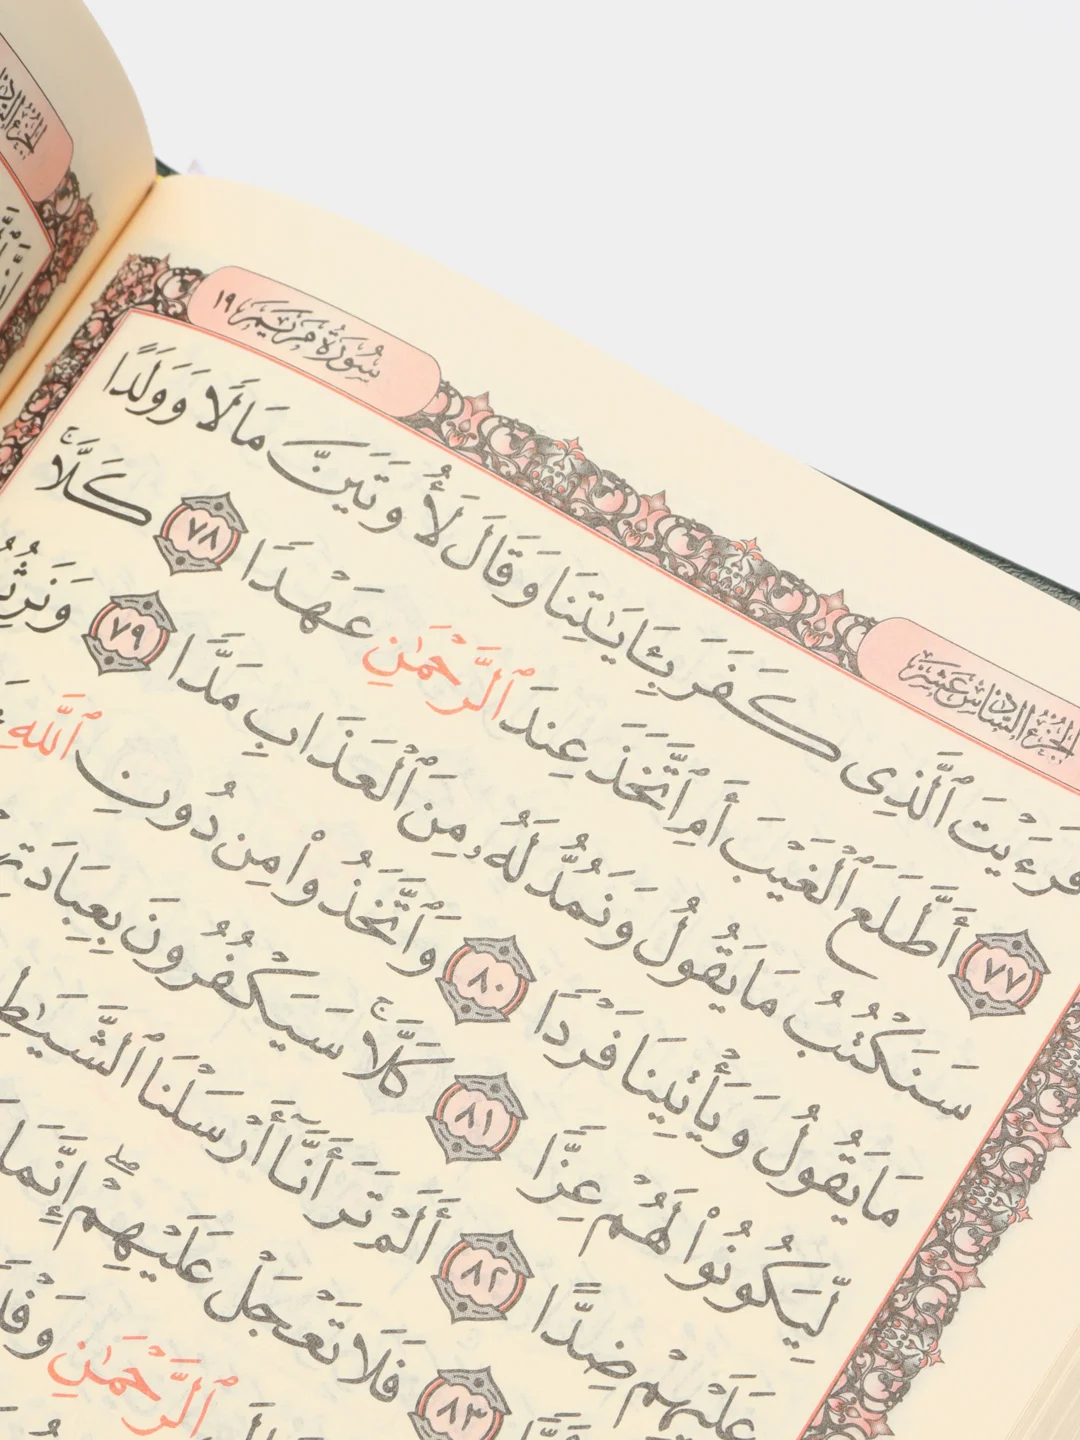 سُورَةُ مَرْيَم ١٩
الجُزْءُ السَّادِسَ عَشَرَ
كَفَرَ بِـَٔايَٰتِنَا وَقَالَ لَأُوتَيَنَّ مَالًا وَوَلَدًا
ٱلَّذِى
٧٧ أَطَّلَعَ ٱلْغَيْبَ أَمِ ٱتَّخَذَ عِندَ ٱلرَّحْمَٰنِ عَهْدًا ٧٨ كَلَّا ۚ
سَنَكْتُبُ مَا يَقُولُ وَنَمُدُّ لَهُۥ مِنَ ٱلْعَذَابِ مَدًّا ٧٩
مَا يَقُولُ وَيَأْتِينَا فَرْدًا ٨٠ وَٱتَّخَذُوا۟ مِن دُونِ ٱللَّهِ
لِّيَكُونُوا۟ لَهُمْ عِزًّا ٨١ كَلَّا ۚ سَيَكْفُرُونَ
عَلَيْهِمْ ضِدًّا ٨٢ أَلَمْ تَرَ أَنَّآ أَرْسَلْنَا
٨٣ فَلَا تَعْجَلْ عَلَيْهِمْ ۖ إِنَّمَا
ٱلرَّحْمَٰنِ